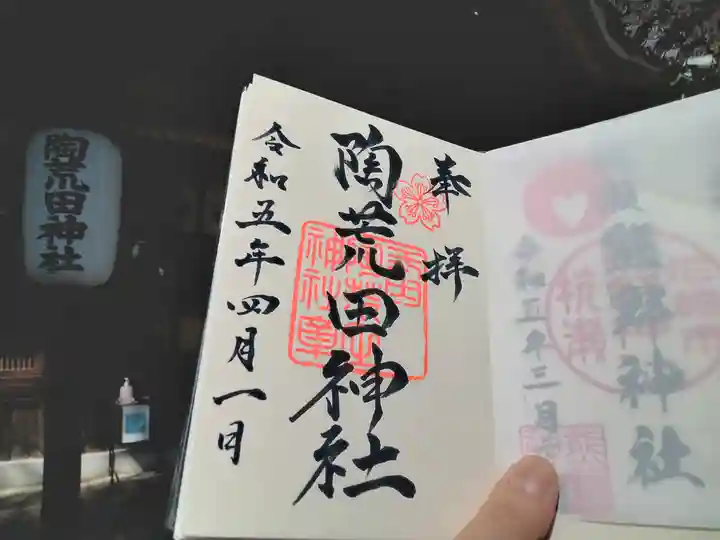 陶荒田神社
奉拝
陶荒田神社
令和五年四月一日
熊野神社
令和五年三月